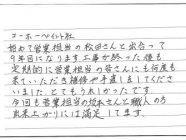 コーホーペイント社
始めて営業担当の秋田さんと出会って
9年目になります。工事が終った後も
定期的に営業担当の皆さんにも何度も
来ていただき補修や手直しをしてください
ました。とてもうれしかったです。
今回も営業担当の坂本さんと職人のう
出来上がりには満足してます。